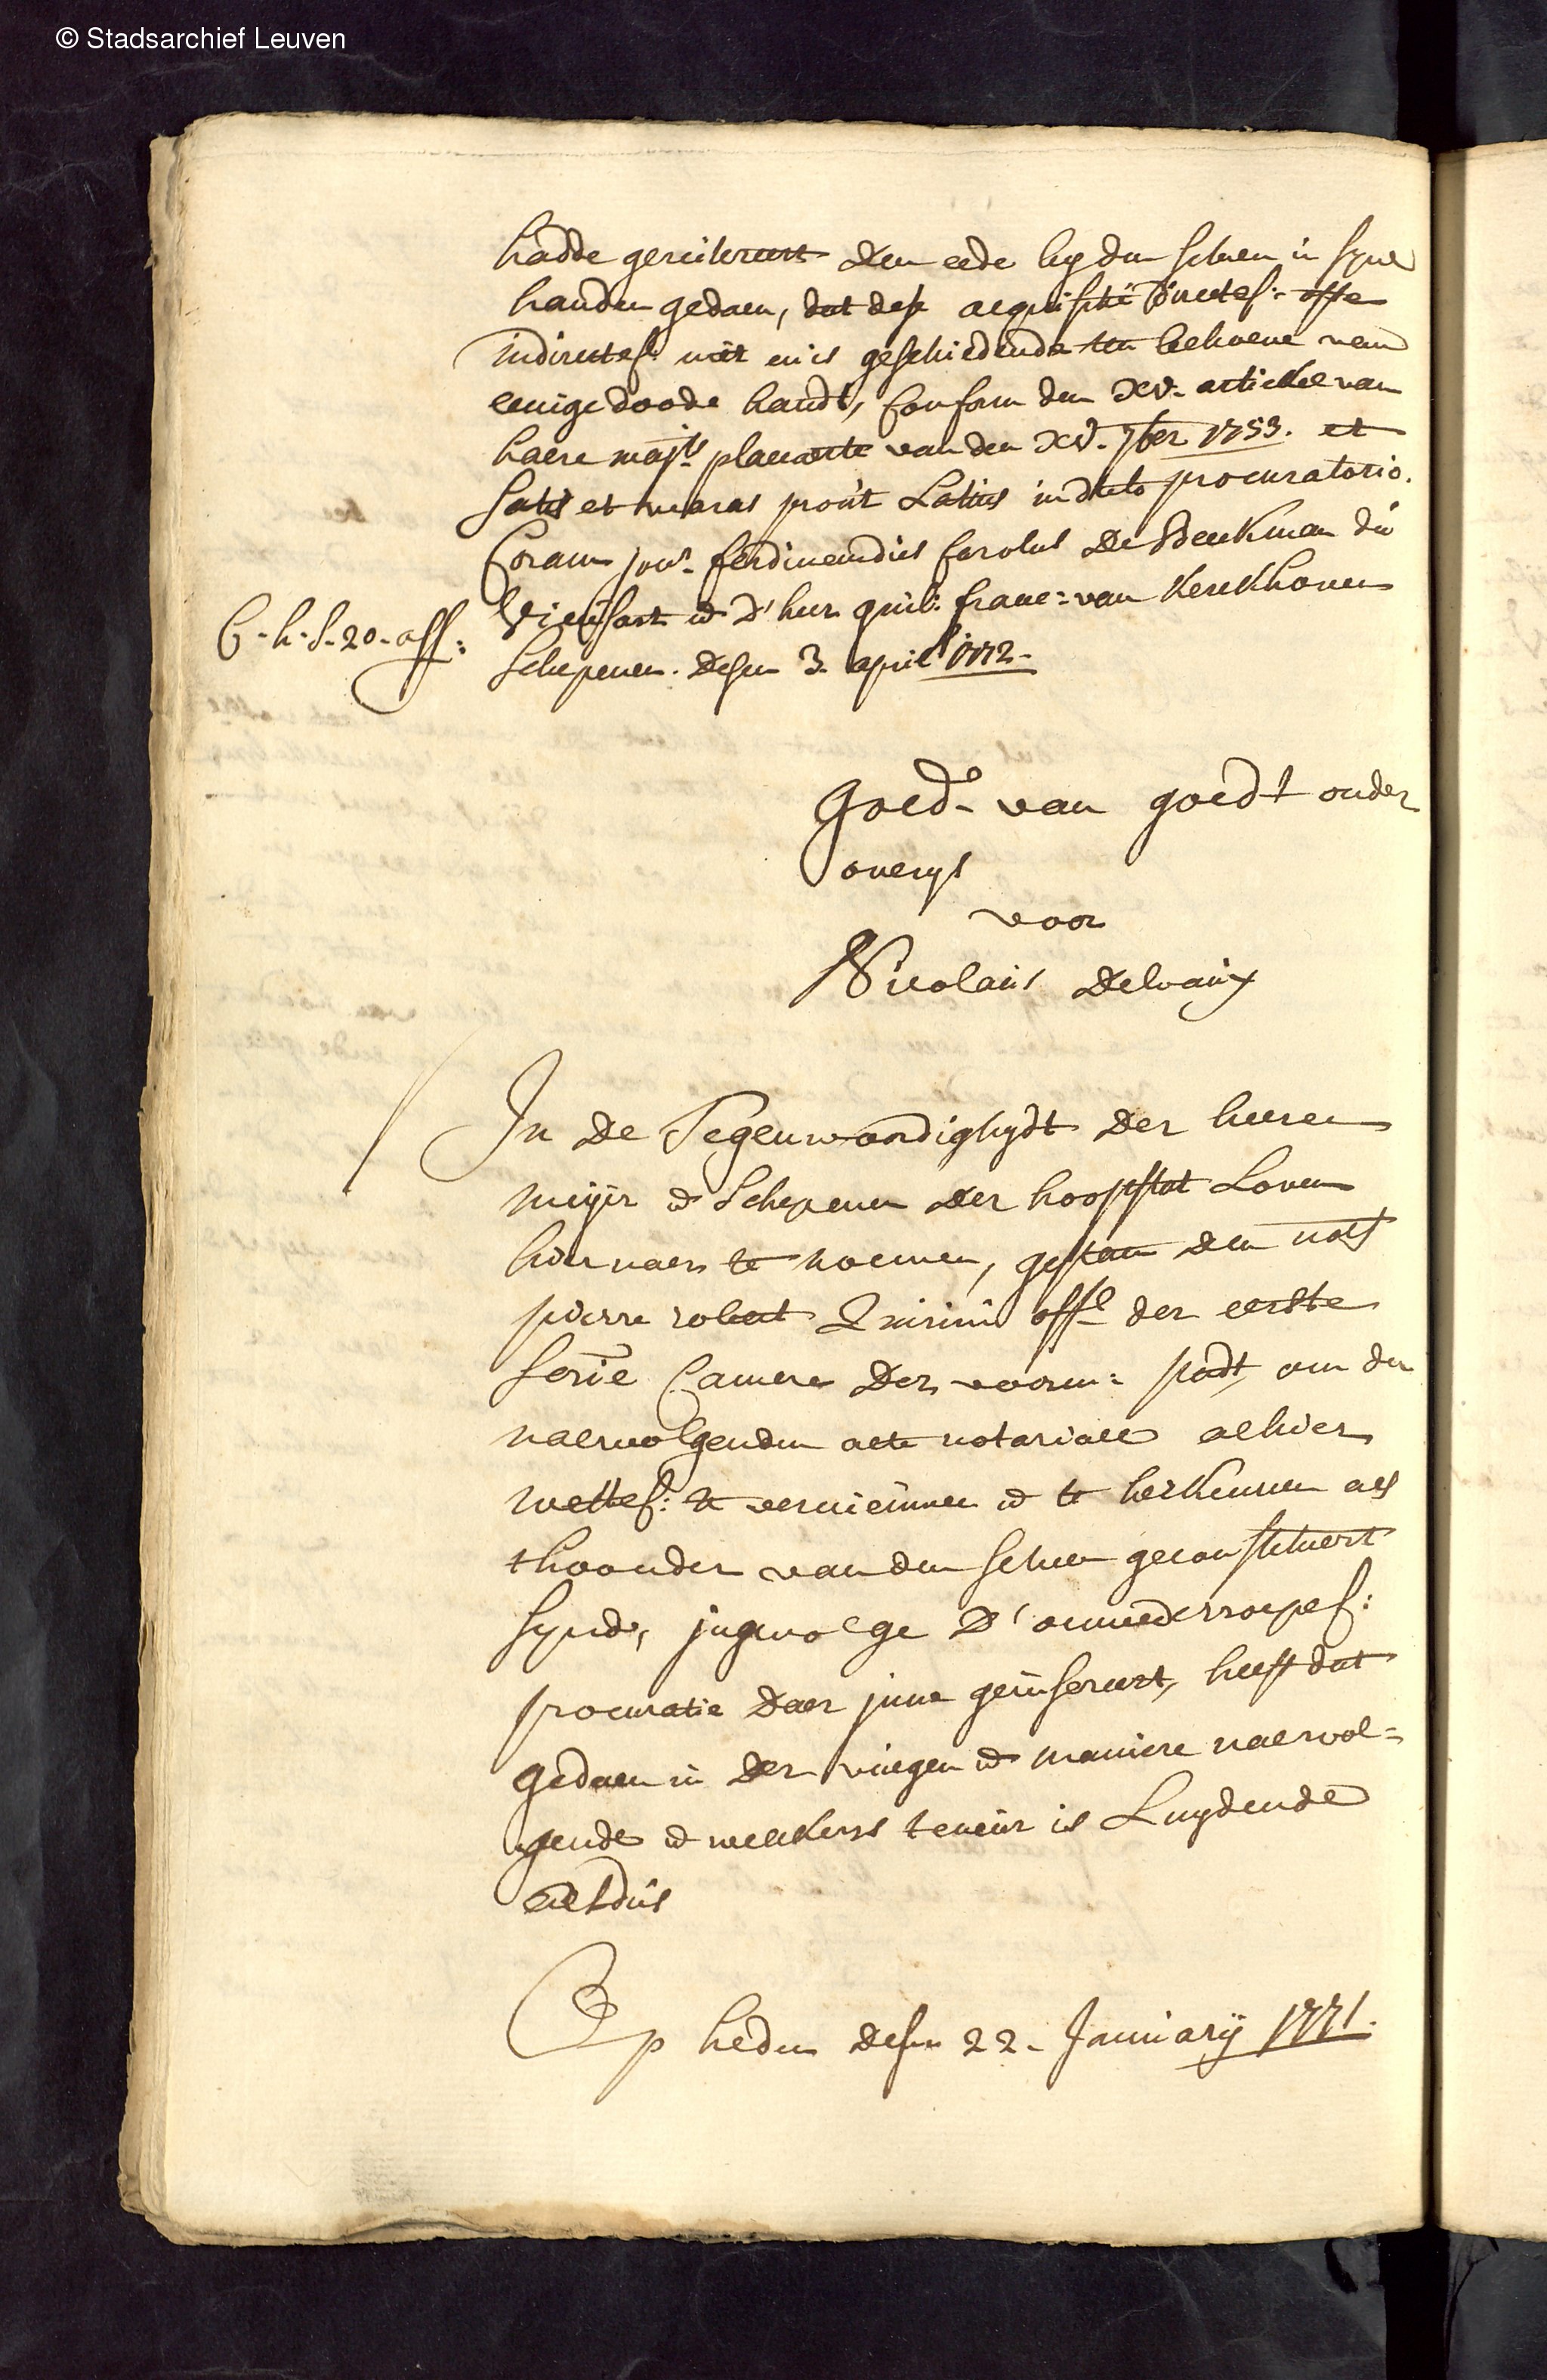 © Stadsarchief Leuven
hadde gereitereert den eede by den selven in syne
handen gedaen, dat dese acquisitie directel: ofte
indirectel: niet en is geschiedende ten behoeve van
eenige doode handt, conform den XV. artickel van
haere majts. placcarte van den XV. 7ber 1753. et
satis et waras prout Latius in dicto procuratorio.
Coram jonr. ferdinandus Carolus De
Vicifart et d'heer guil: franc: van Kerckhoven
C.h.S.20.aff:
Schepenen. Desen 3. april 1772.
Goed. van goedt onder
overys
voor
Nicolaus Delvaux
In De Tegenwoordighydt Der heeren
meyer et Schepenen Der hooftstat Loven
hier naer te noemen, gestaen den nots
pierre robert Quirini offl der eerste
secrie Camere Der voorn: stadt, om den
naervolgenden acte notariael alhier
wettel: te vernieuwen et te herkennen als
thoonder van den selven geconstitueert
synde, ingevolge D'onwederroepel:
procuratie Daer inne geinsereert, heeft dat
gedaen in Der vuegen et maniere naervol=
gende et welckers teneur is Luydende
aldus
Op heden desen 22. January 1771.